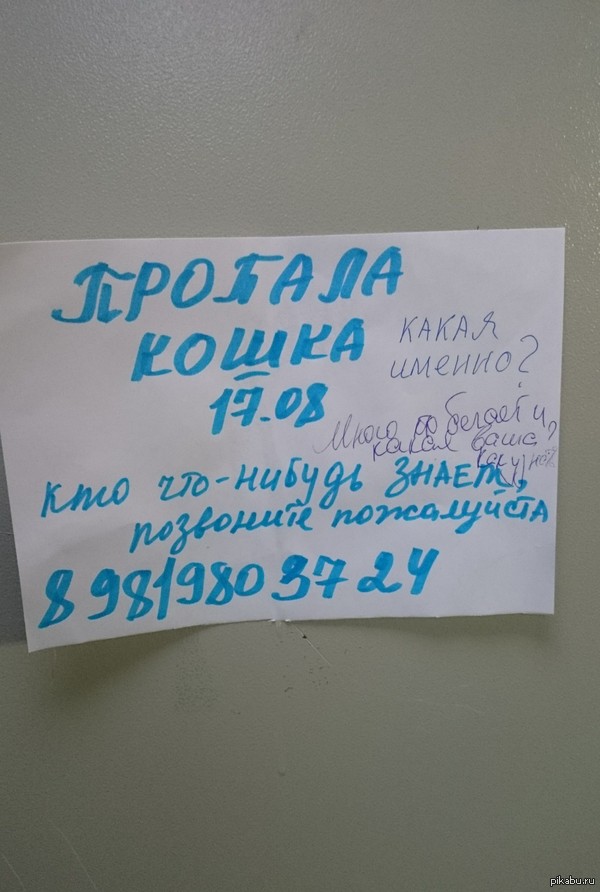 ПРОПАЛА
КОШКА
17.08
КАКАЯ
ИМЕННО?
Много бегает и
какая ваша?
кто что-нибудь ЗНАЕТ,
позвоните пожалуйста
8 981 980 37 24
pikabu.ru